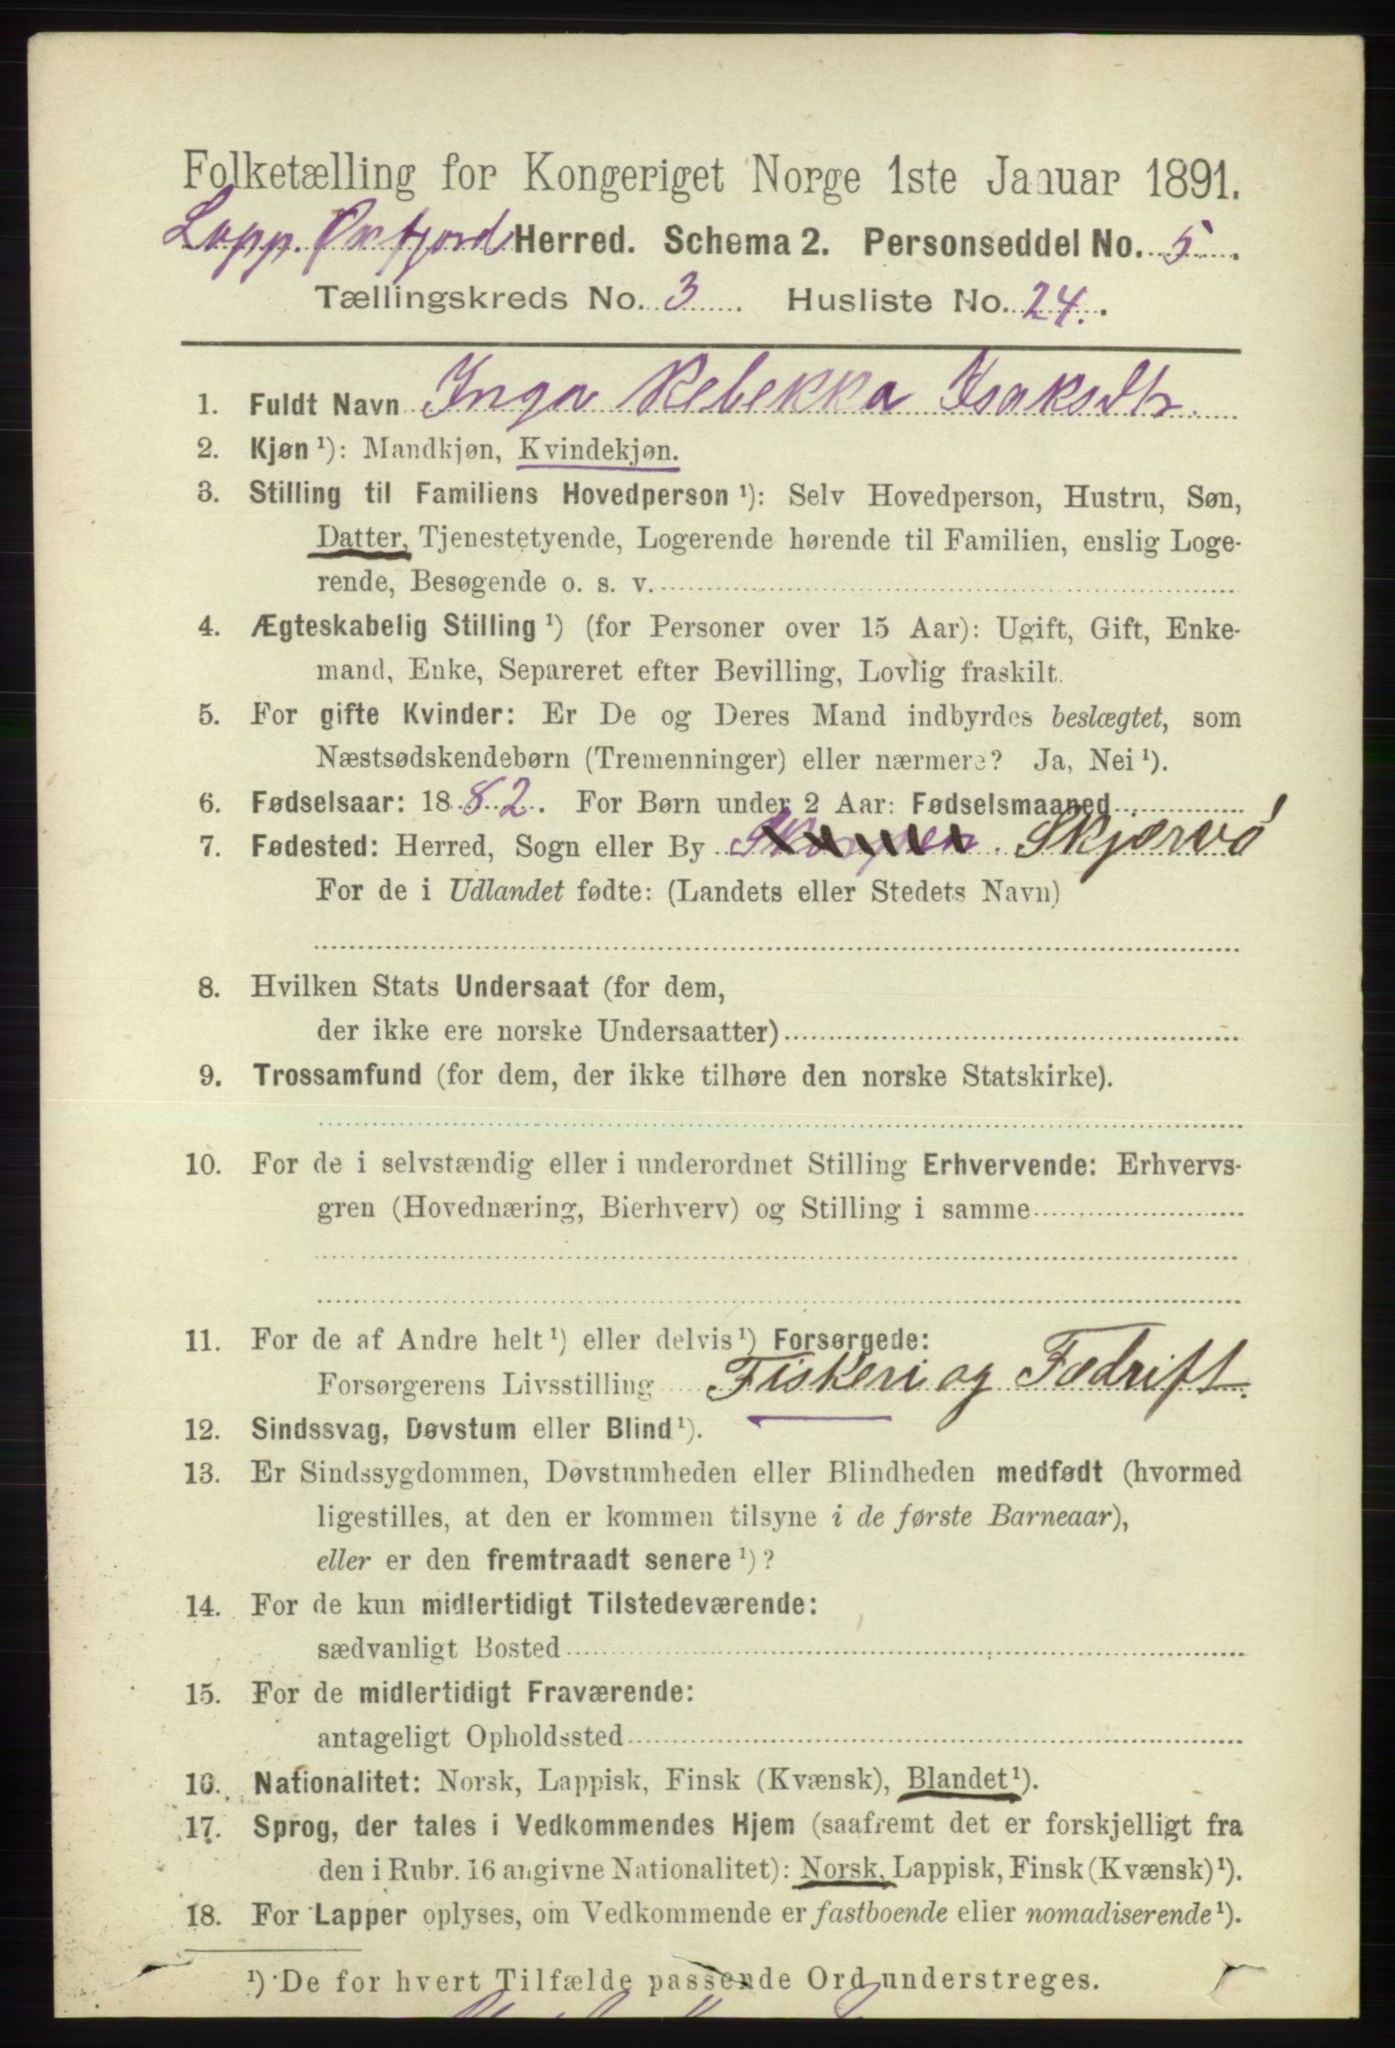 Folketælling for Kongeriget Norge 1ste Januar 1891.
Lopp. Øxfjord Herred. Schema 2. Personseddel No. 5.
Tællingskreds No. 3. Husliste No. 24.
1. Fuldt Navn Inga Rebekka Isaksdtr.
2. Kjøn ¹): Mandkjøn, Kvindekjøn.
3. Stilling til Familiens Hovedperson ¹): Selv Hovedperson, Hustru, Søn,
Datter, Tjenestetyende, Logerende hørende til Familien, enslig Loge-
rende, Besøgende o. s. v.
4. Ægteskabelig Stilling ¹) (for Personer over 15 Aar): Ugift, Gift, Enke-
mand, Enke, Separeret efter Bevilling, Lovlig fraskilt.
5. For gifte Kvinder: Er De og Deres Mand indbyrdes beslægtet, som
Næstsødskendebørn (Tremenninger) eller nærmere? Ja, Nei ¹).
6. Fødselsaar: 1882. For Børn under 2 Aar: Fødselsmaaned
7. Fødested: Herred, Sogn eller By Skjærvö
For de i Udlandet fødte: (Landets eller Stedets Navn)
8. Hvilken Stats Undersaat (for dem,
der ikke ere norske Undersaatter)
9. Trossamfund (for dem, der ikke tilhøre den norske Statskirke).
10. For de i selvstændig eller i underordnet Stilling Erhvervende: Erhvervs-
gren (Hovednæring, Bierhverv) og Stilling i samme
11. For de af Andre helt ¹) eller delvis ¹) Forsørgede:
Forsørgerens Livsstilling Fiskeri og Fædrift.
12. Sindssvag, Døvstum eller Blind ¹).
13. Er Sindssygdommen, Døvstumheden eller Blindheden medfødt (hvormed
ligestilles, at den er kommen tilsyne i de første Barneaar),
eller er den fremtraadt senere ¹)?
14. For de kun midlertidigt Tilstedeværende:
sædvanligt Bosted
15. For de midlertidigt Fraværende:
antageligt Opholdssted
16. Nationalitet: Norsk, Lappisk, Finsk (Kvænsk), Blandet ¹).
17. Sprog, der tales i Vedkommendes Hjem (saafremt det er forskjelligt fra
den i Rubr. 16 angivne Nationalitet): Norsk, Lappisk, Finsk (Kvænsk) ¹).
18. For Lapper oplyses, om Vedkommende er fastboende eller nomadiserende ¹).
¹) De for hvert Tilfælde passende Ord understreges.